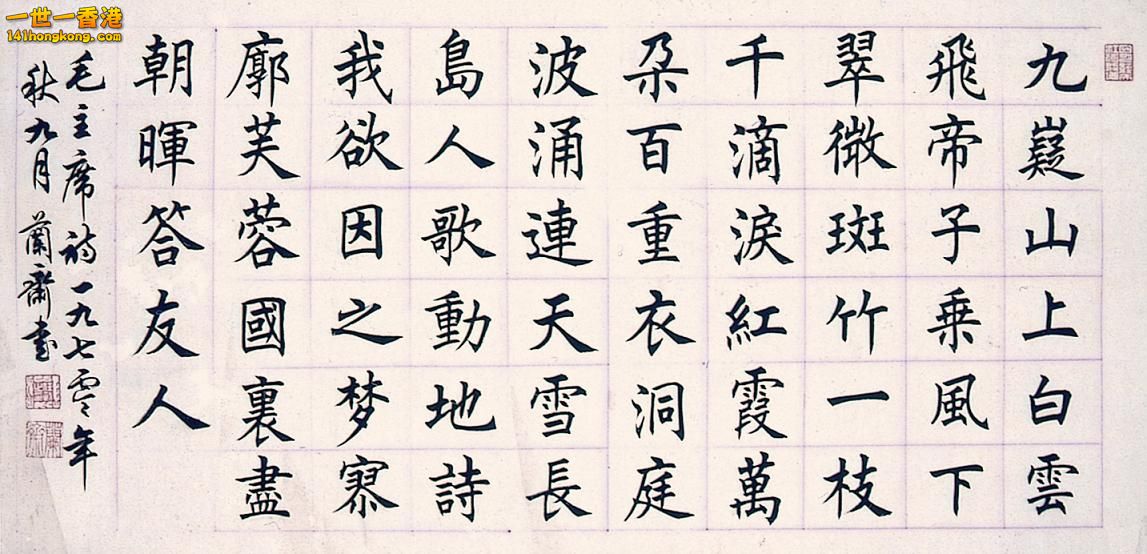 九嶷山上白雲
飛帝子乗風下
翠微斑竹一枝
千滴淚紅霞萬
朵百重衣洞庭
波涌連天雪長
島人歌動地詩
我欲因之梦寥
廓芙蓉國裏盡
朝暉答友人
毛主席詩一九七零年
秋九月蘭齋書
一世一香港
141hongkong.com